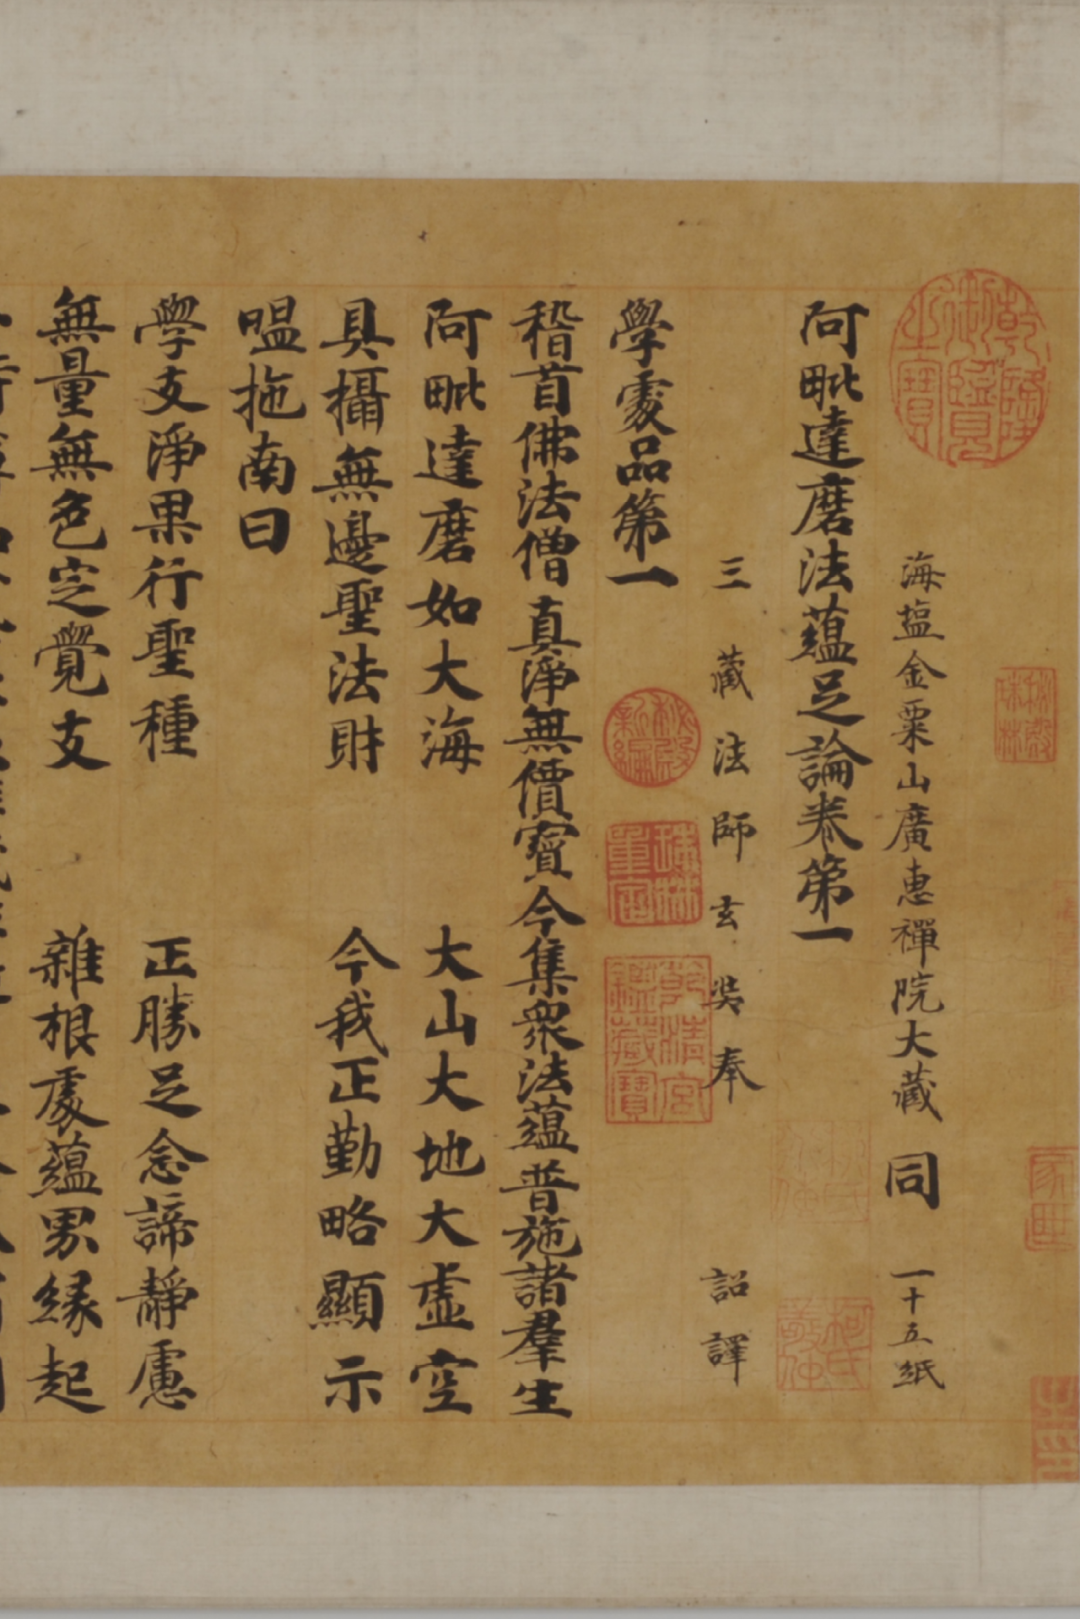 海塩金粟山廣惠禪院大藏 同 一十五紙
阿毗達磨法蘊足論卷第一
三藏法師玄奘奉 詔譯
學處品第一
稽首佛法僧真淨無價寶今集衆法蘊普施諸羣生
阿毗達磨如大海 大山大地大虛空
具攝無邊聖法財 今我正勤略顯示
嗢拖南曰
學支淨果行聖種 正勝足念諦靜慮
無量無色定覺支 雜根處蘊界緣起
乾隆御覽之寶
秘殿珠林
秘殿新編
珠林重定
乾清宮鑒藏寶
柯氏敬仲